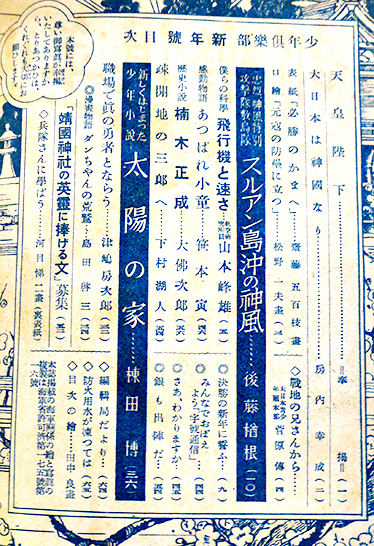 少年倶樂部 新年號目次
本號には、
尊い御寫眞が奉掲
いたしてありますか
ら、とりあつかひは、
くれぐれも大切にお
願ひします。
天皇陛下……………＝奉掲＝(一)
大日本は神國なり…………房内幸成(二)
表紙「必勝のかまへ」…………齋藤五百枝畫
口繪「元寇の防壘に立つ」…………松野一夫畫
◇戰地の兄さんから……大日本青少年團本部 菅原傳(四)
忠烈神風特別攻擊隊敷島隊 スルアン島沖の神風……後藤楢根(一〇)
僕らの科學 飛行機と速さ……航空研究所員 山本峰雄
感動物語 あつぱれ小童……笹本寅
歴史小説 楠木正成……大佛次郎
疎開地の三郎へ……下村湖人
◎決勝の新年に誓ふ……
◎みんなでおぼえよう「手旗通信」……
◎さあ、わかりますか……
◎銀も出陣だ……
新しくはじまつた少年小説 太陽の家……棟田博(三六)
職場で眞の勇者とならう……津嶋房次郎
◎漫畫物語 ダンちゃんの荒鷲……島田啓三
「靖國神社の英靈に捧げる文」募集
◇兵隊さんに學ばう……河目悌二畫(裏表紙)
◇編輯局だより……
◇防火用水が凍つては……
◇目次の繪……田中良畫
本誌掲載の海軍關係の繪と寫眞の複製は海軍省許可濟第一七五號第六號